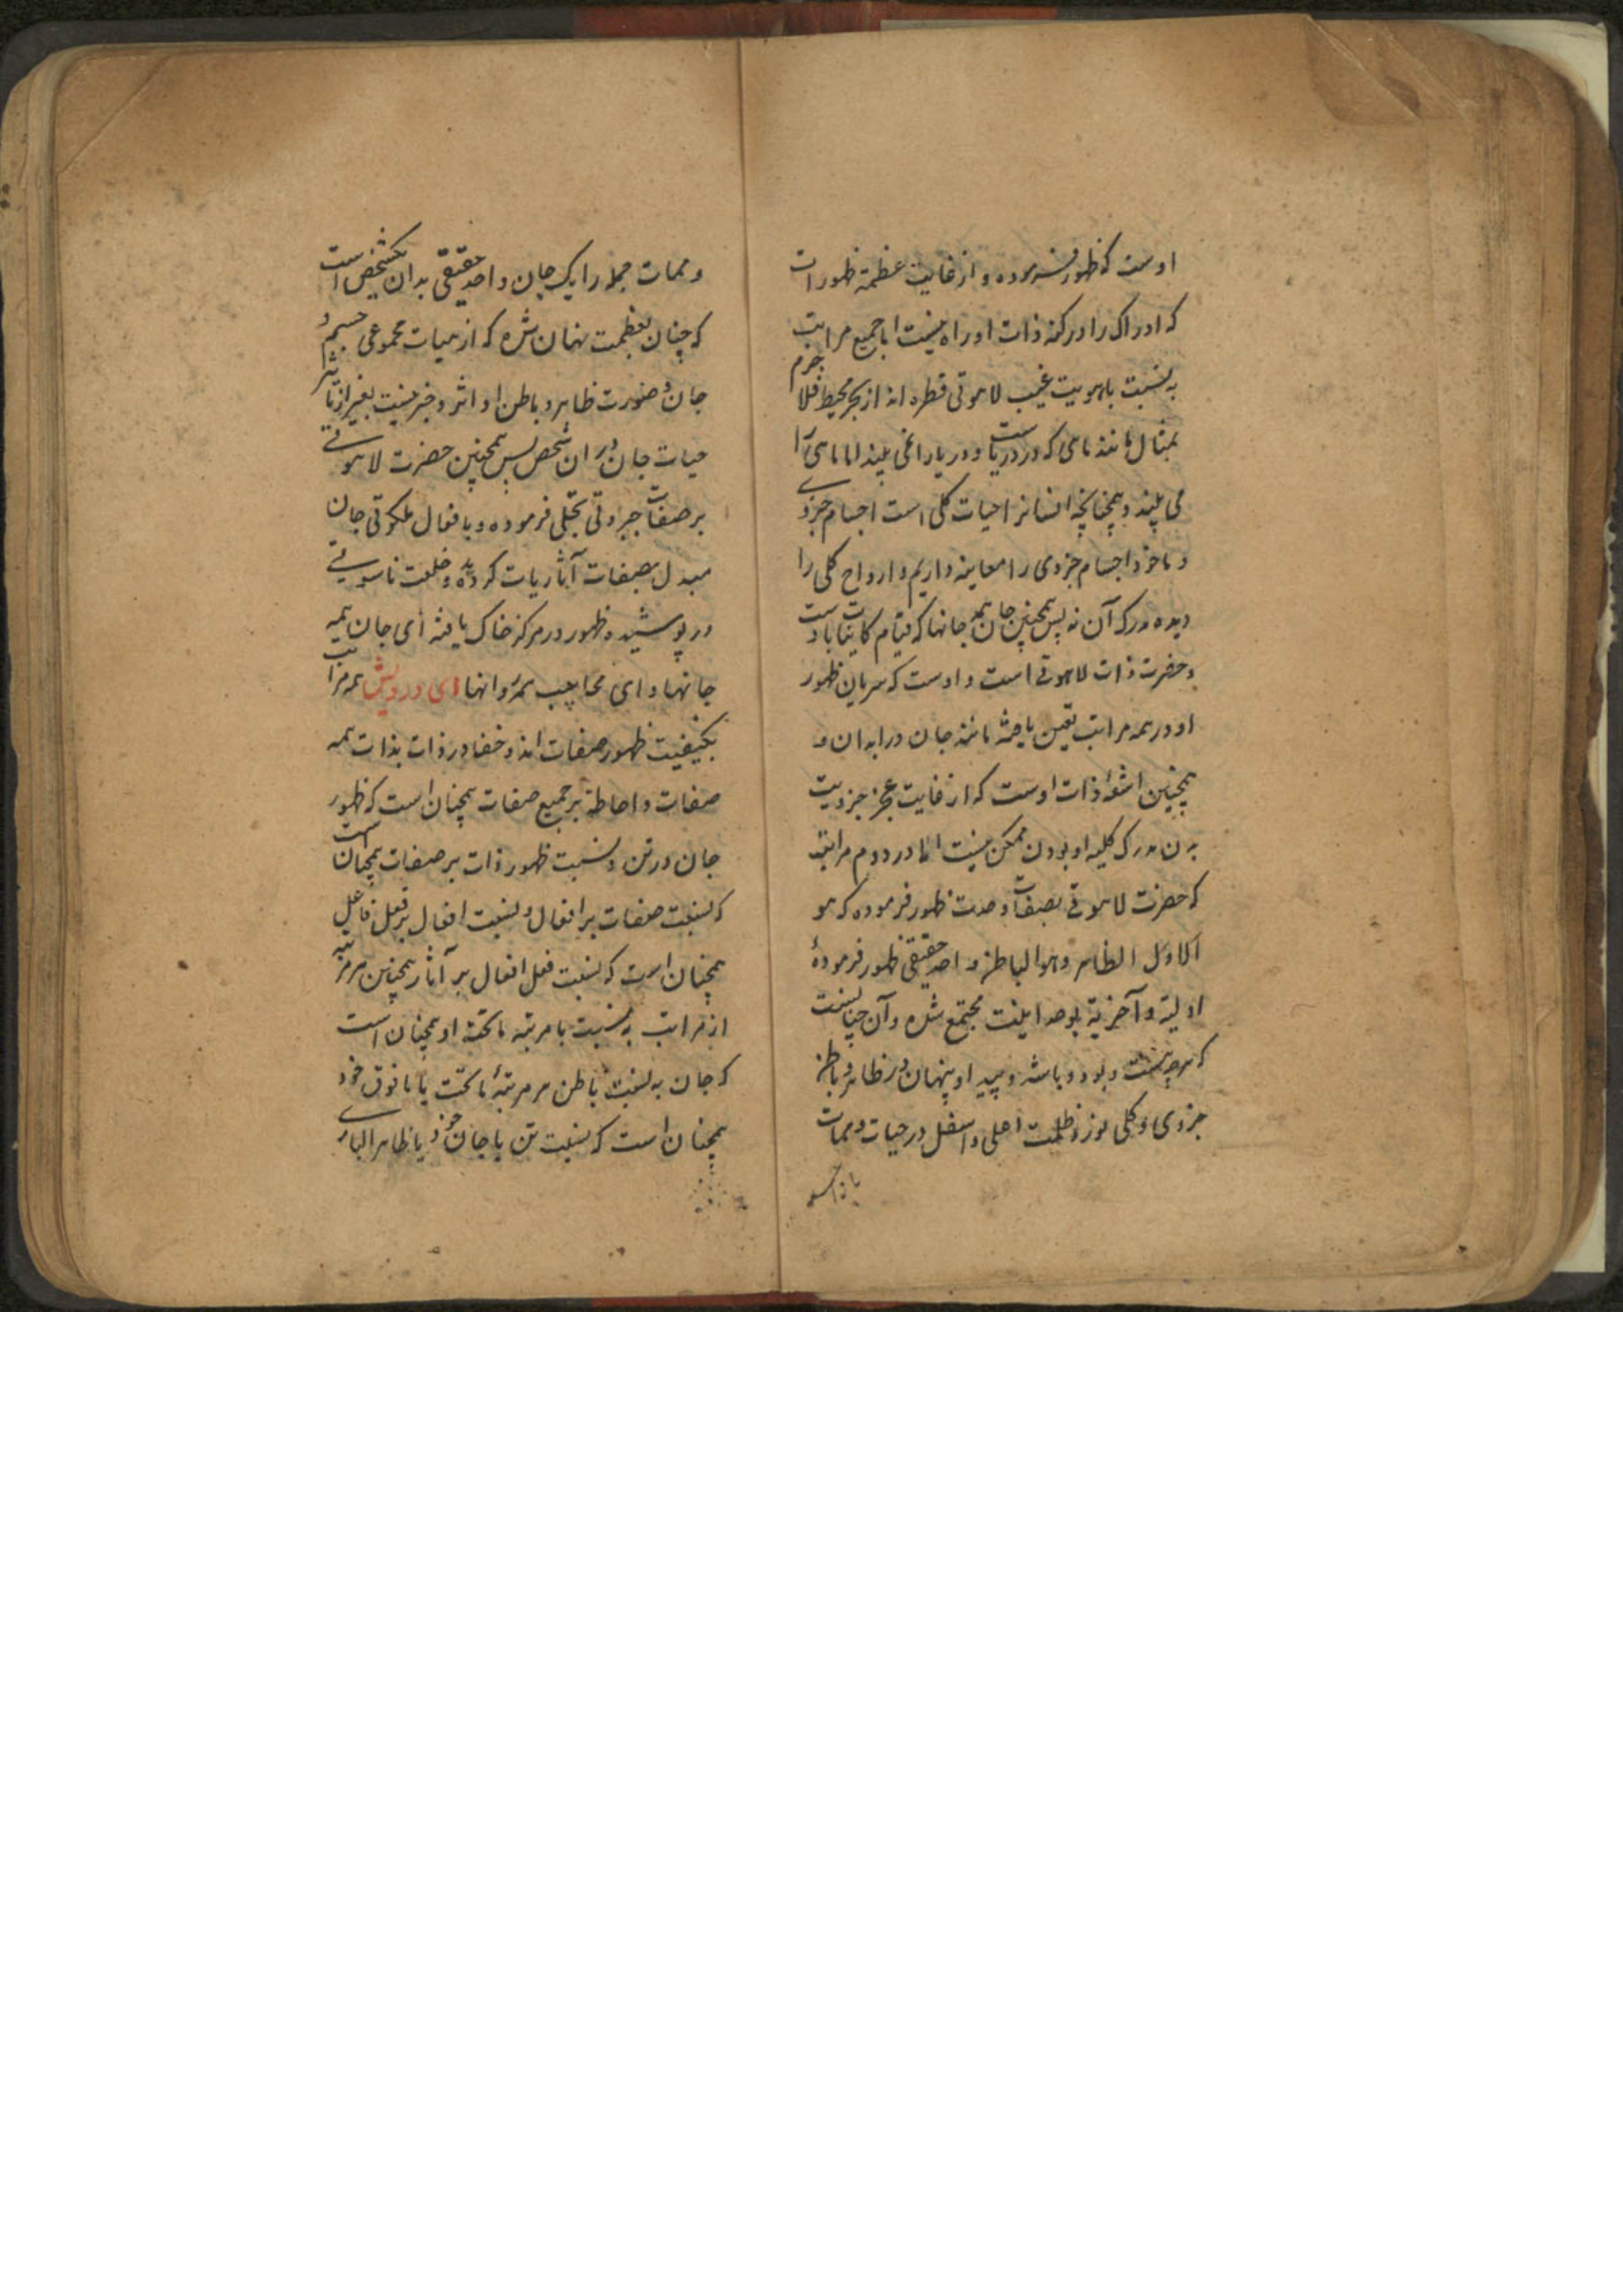 اوست که ظهور فرموده و از غایت عظمة ظهور است
که ادراک را در کنه ذات او راه نیست اما جمیع مراتب
به نسبت با هویت غیب لاهوتی قطره اند از بحر محیط فلا جرم
بمثال مانند ماهی که در دریاست و دریا را نمی بیند اما ماهی را
می بیند و همچنانچه انسانرا حیات کلی است اجسام جزوی
و ما خود اجسام جزوی را معاینه داریم و ارواح کلی را
دیده مدرک آن نه پس همچنین جان همه جانها که قیام کاینات باوست
و حضرت ذات لاهوتی است و اوست که سریان ظهور
او در همه مراتب تعین یافته مانند جان در ابدان و
همچنین اشعهٔ ذات اوست که از غایت عجز جزویت
بدن مدرک کلیه او بودن ممکن نیست اما در دوم مراتبه
که حضرت لاهوتی بصفات وحدت ظهور فرموده که هو
الاول الظاهر وهو الباطن واحد حقیقی ظهور فرمودهٔ
اولیة و آخریة بوحدانیت مجتمع شده و آن چنانست
که هر چه هست و بود و باشد و پیدا و پنهان و ظاهر و باطن
جزوی و کلی نور و ظلمت اعلی و اسفل در حیات و ممات
و ممات جمله را یک جان واحد حقیقی بدان یکشخص است
که چنان بعظمت نهان شده که از هیات مجموعی جسم و
جان و صورت ظاهر و باطن او اثر و خبر نیست بغیر از تاثیر
حیات جان در آن شخص پس همچنین حضرت لاهوتی
بر صفات جبروتی تجلی فرموده و بافعال ملکوتی جان
مبدل بصفات آثاریات کردیده و خلعت ناسوتی
در پوشیده ظهور در مرکز خاک یافته ای جان همه
جانها و ای محاجب همه روانها ای درویش همه مراتب
بکیفیت ظهور صفات اند و خفا در ذات بذات همه
صفات و احاطة بر جمیع صفات همچنان است که ظهور
جان در تن و نسبت ظهور ذات بر صفات همچنان است
که نسبت صفات بر افعال و نسبت افعال بر فعل فاعل
همچنان است که نسبت فعل افعال بر آثار همچنین هر مرتبه
از مراتب به نسبت با مرتبه ماتحته او همچنان است
که جان به نسبت باطن هر مرتبهٔ ماتحت با مافوق خود
همچنان است که نسبت تن با جان خود یا ظاهر الباری